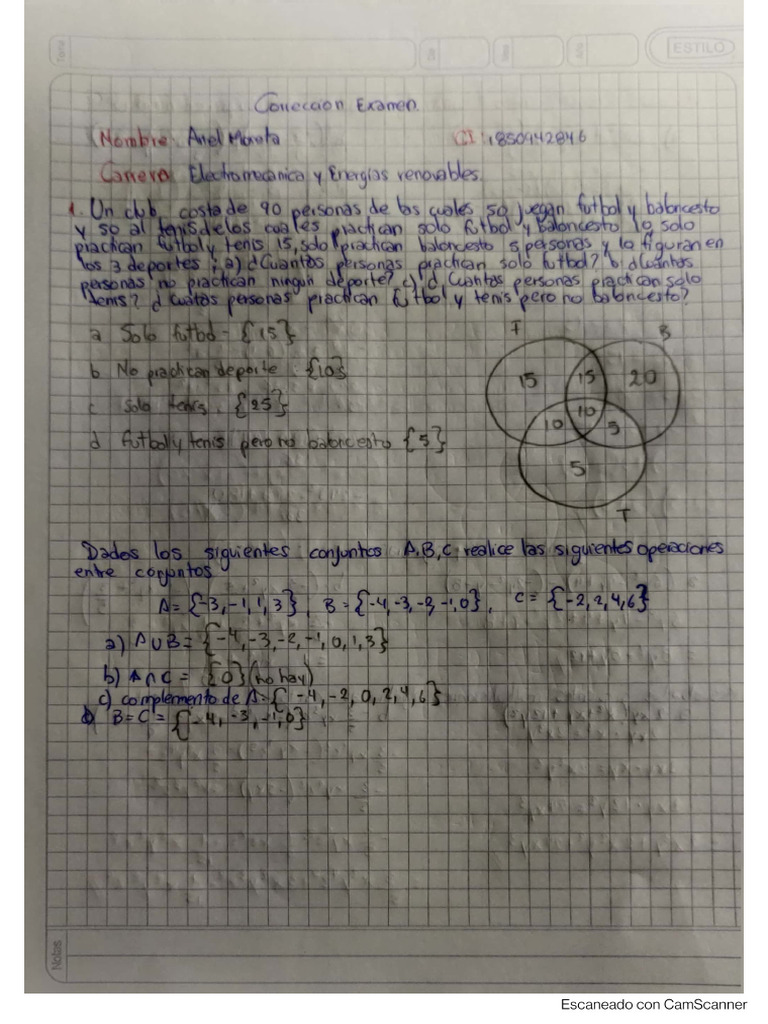 Tema
Día
Mes
Año
ESTILO
Coneccion Examen.
Nombre: Ariel Morota
CI: 1850942846
Carrera: Electromecanica y Energias renovables.
1. Un club, costa de 90 personas de las cuales, 50 juegan futbol y baloncesto
y 50 al tenis, de los cuales practican solo futbol y baloncesto 10, solo
practican futbol y tenis 15, solo practican baloncesto 5 personas y 10 figuran en
los 3 deportes; a) ¿Cuantas personas practican solo futbol? b ¿Cuantas
personas no practican ningun deporte? c) ¿Cuantas personas practican solo
tenis? d cuatas personas practican futbol y tenis pero no baloncesto?
a Solo futbol = {15}
b No practican deporte. {10}
c solo tenis. {25}
d futbol y tenis pero no baloncesto {5}
F
B
15
15
20
10
10
5
5
T
Dados los siguientes conjuntos A, B, C realice las siguientes operaciones
entre conjuntos
A = {-3, -1, 1, 3}, B = {-4, -3, -2, -1, 0}, C = {-2, 2, 4, 6}
a) A∪B = {-4, -3, -2, -1, 0, 1, 3}
b) A∩C = {0} (no hay)
c) complemento de A = { -4, -2, 0, 2, 4, 6}
B = C = {-4, -3, -1, 0}
Notas
Escaneado con CamScanner